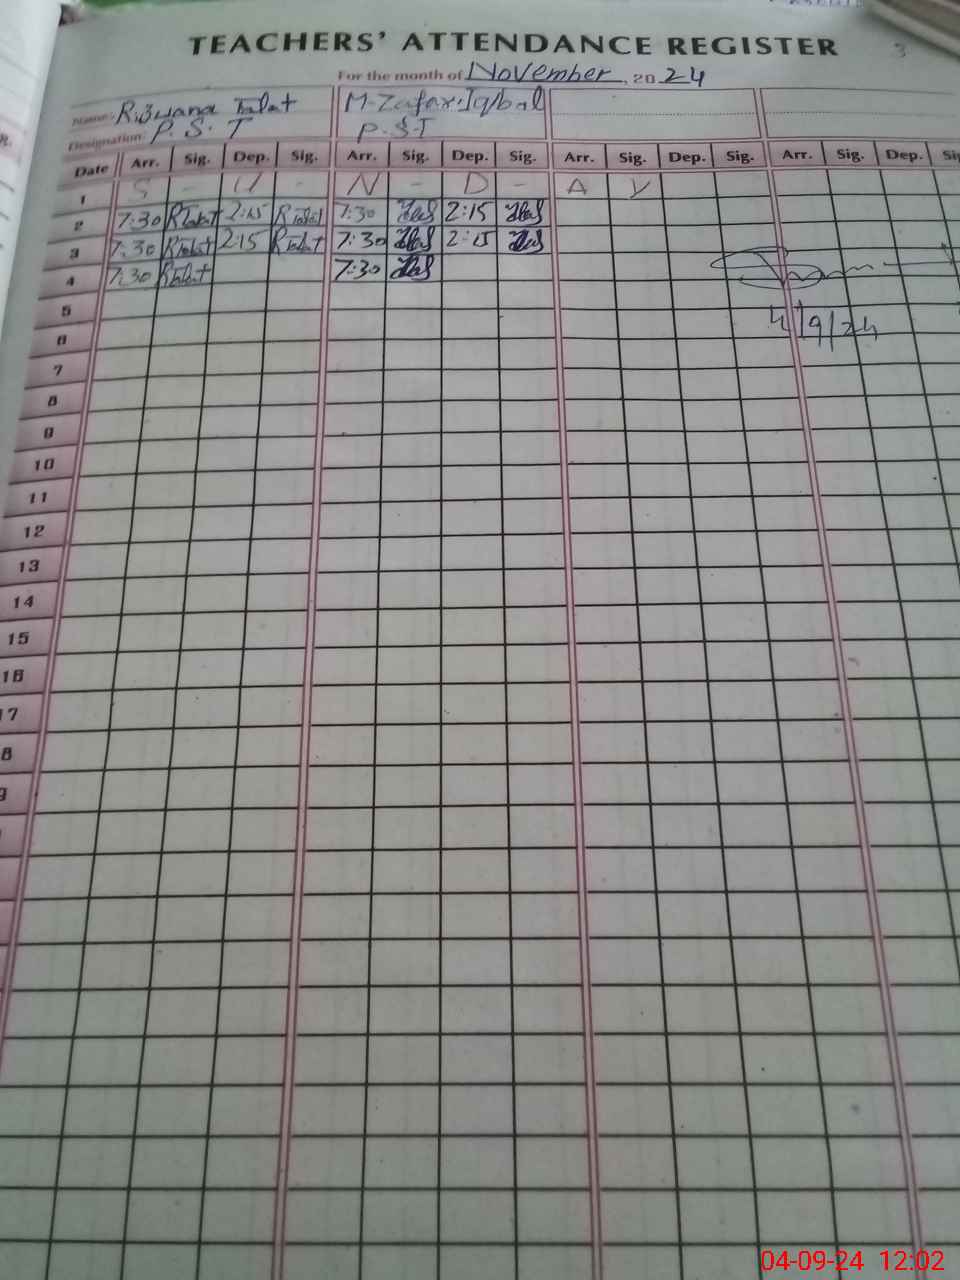 3
TEACHERS' ATTENDANCE REGISTER
For the month of November, 2024
Name: Rizwana Talat M-Zafar.Iqbal
Designation: P. S. T P.S.T
Date Arr. Sig. Dep. Sig. Arr. Sig. Dep. Sig. Arr. Sig. Dep. Sig. Arr. Sig. Dep.
1 S - U - N - D - A Y
2 7:30 RTalat 2:15 RTalat 7:30 2:15
3 7:30 RTalat 2:15 RTalat 7:30 2:15
4 7:30 RTalat 7:30
5
4/9/24
6
7
8
9
10
11
12
13
14
15
16
17
8
9
04-09-24 12:02